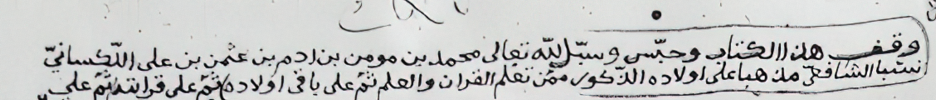 وقف هذا الكتاب وحبّس وسبّل لله تعالى محمد بن مومن بن ادم بن عثمن بن على اللكسانيّ
نسبا الشافعى مذهبا على اولاده الذكور ممّن تعلم القران والعلم ثمّ على باقى اولاده ثمّ على قرابته ثمّ على